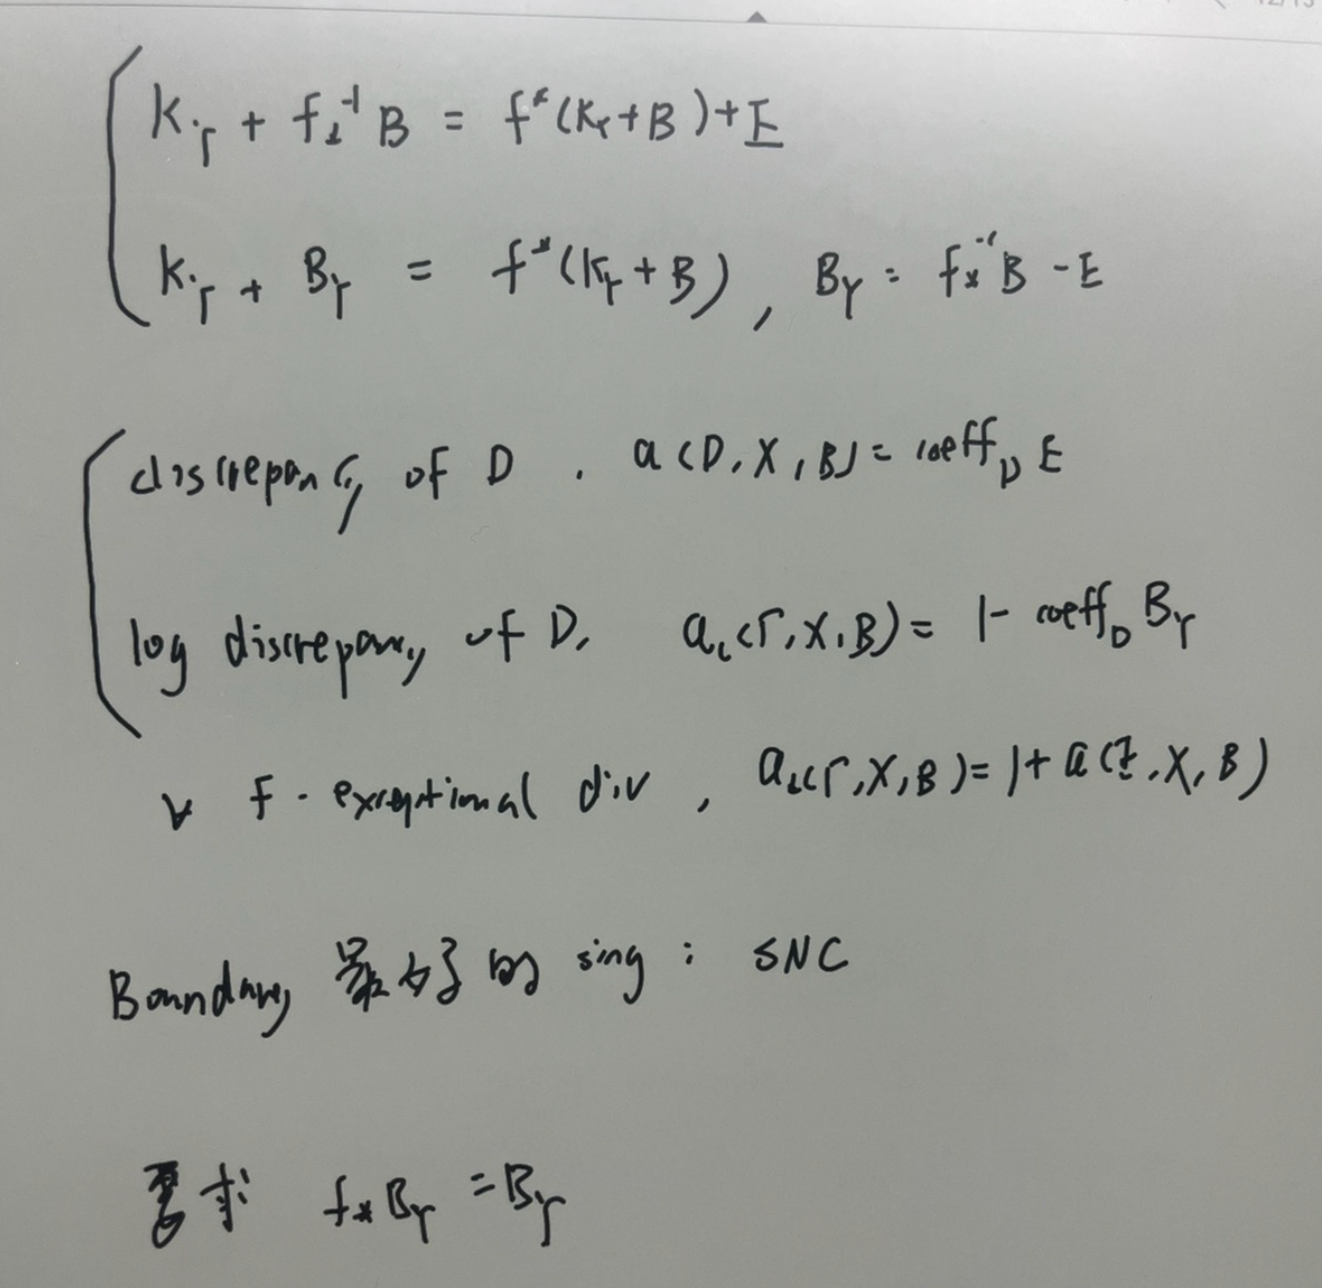 K_Y + f_*^{-1} B = f^*(K_X + B) + E
K_Y + B_Y = f^*(K_X + B), B_Y = f_*^{-1} B - E
discrepancy of D. a(D, X, B) = coeff_D E
log discrepancy of D, a_L(Γ, X, B) = 1 - coeff_D B_Y
∀ F - exceptional div, a_L(Γ, X, B) = 1 + a(E, X, B)
Boundary 最好的 sing: SNC
要求 f_* B_Y = B_Y